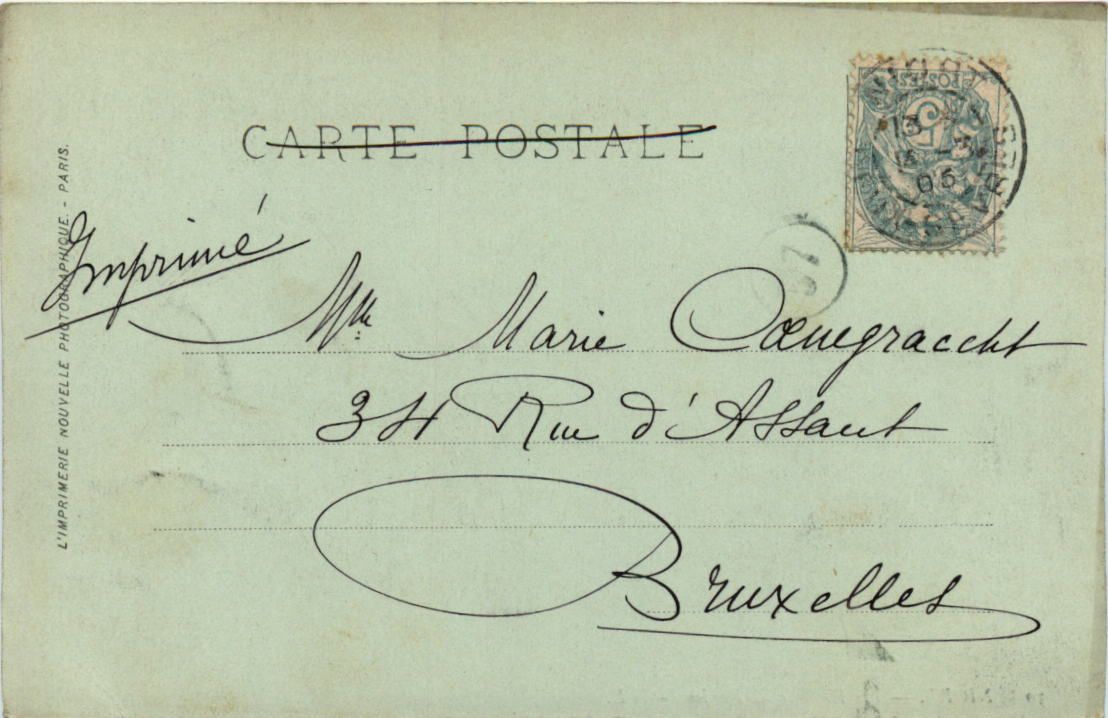 CARTE POSTALE
L'IMPRIMERIE NOUVELLE PHOTOGRAPHIQUE. - PARIS.
Imprimé
Mlle Marie Coenegracht
34 Rue d'Assaut
Bruxelles
POSTES
13
05